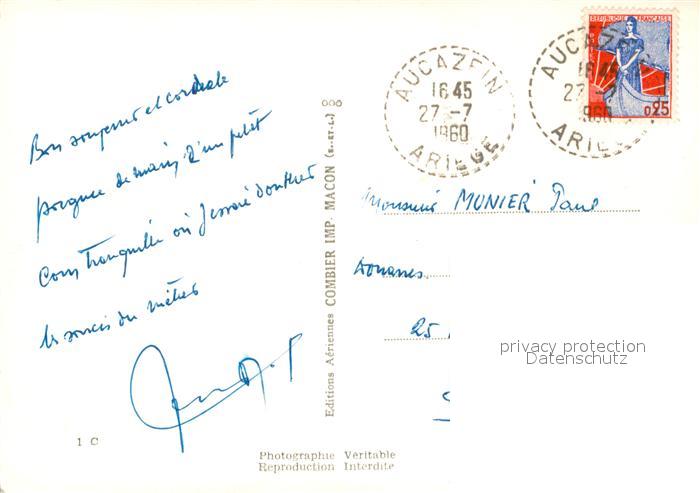 Bon souvenir et cordiale
poignée de mains d'un petit
coin tranquille où j'essaie d'oublier
les soucis du métier
1 C
Photographie Véritable
Reproduction Interdite
Editions Aériennes COMBIER IMP. MACON (S.-ET-L.)
AUCAZEIN
16 45
27 -7
1960
ARIEGE
AUCAZEIN
16 45
27 -7
1960
ARIEGE
REPUBLIQUE FRANÇAISE
0,25
Monsieur MUNIER Paul
Douanes
25
privacy protection
Datenschutz